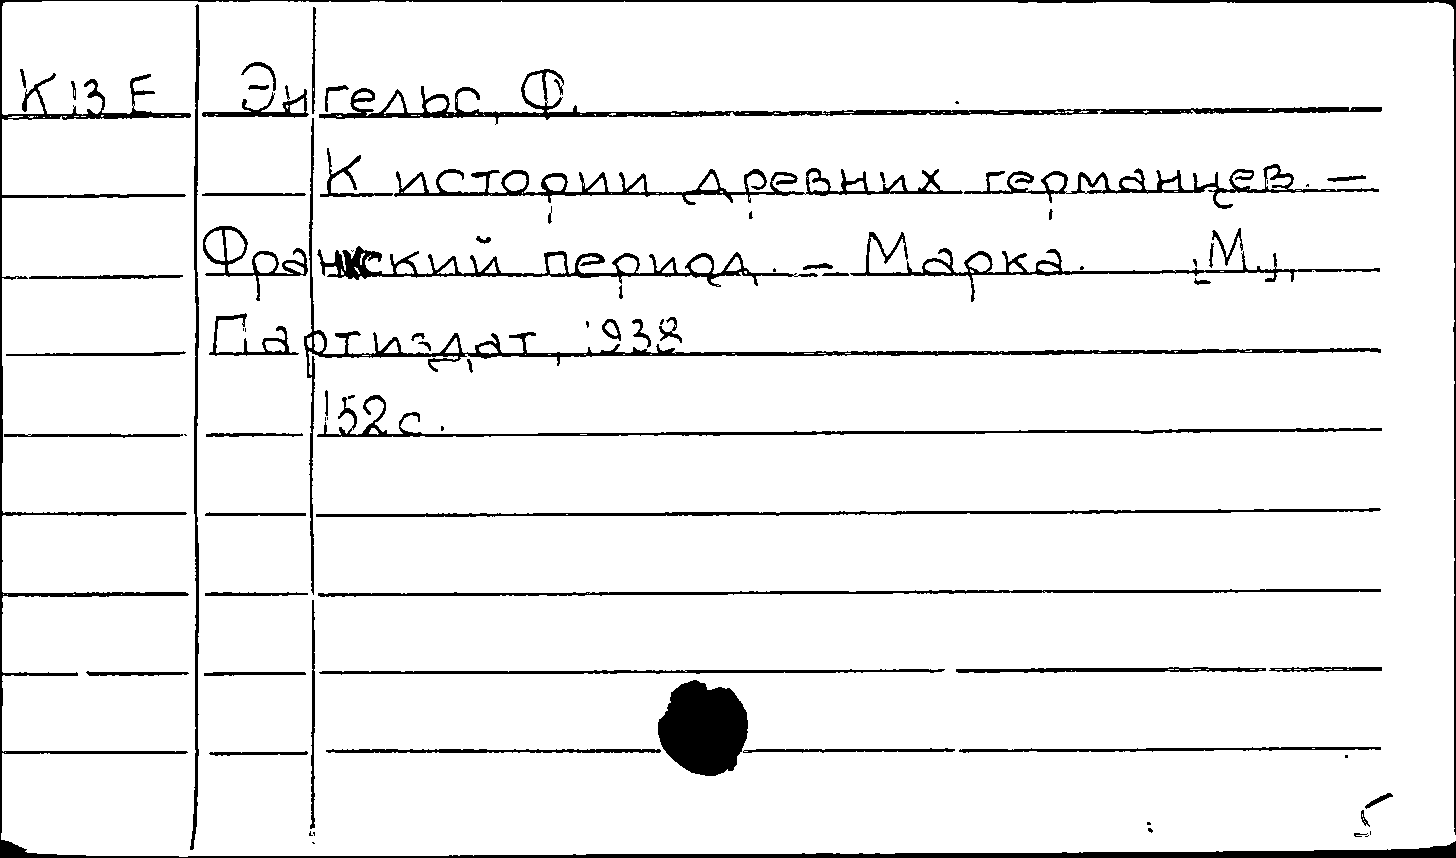 К13Е Энгельс, Ф.
К истории древних германцев. —
Франкский период. — Марка. [М.],
Партиздат, 1938
152 с.
5